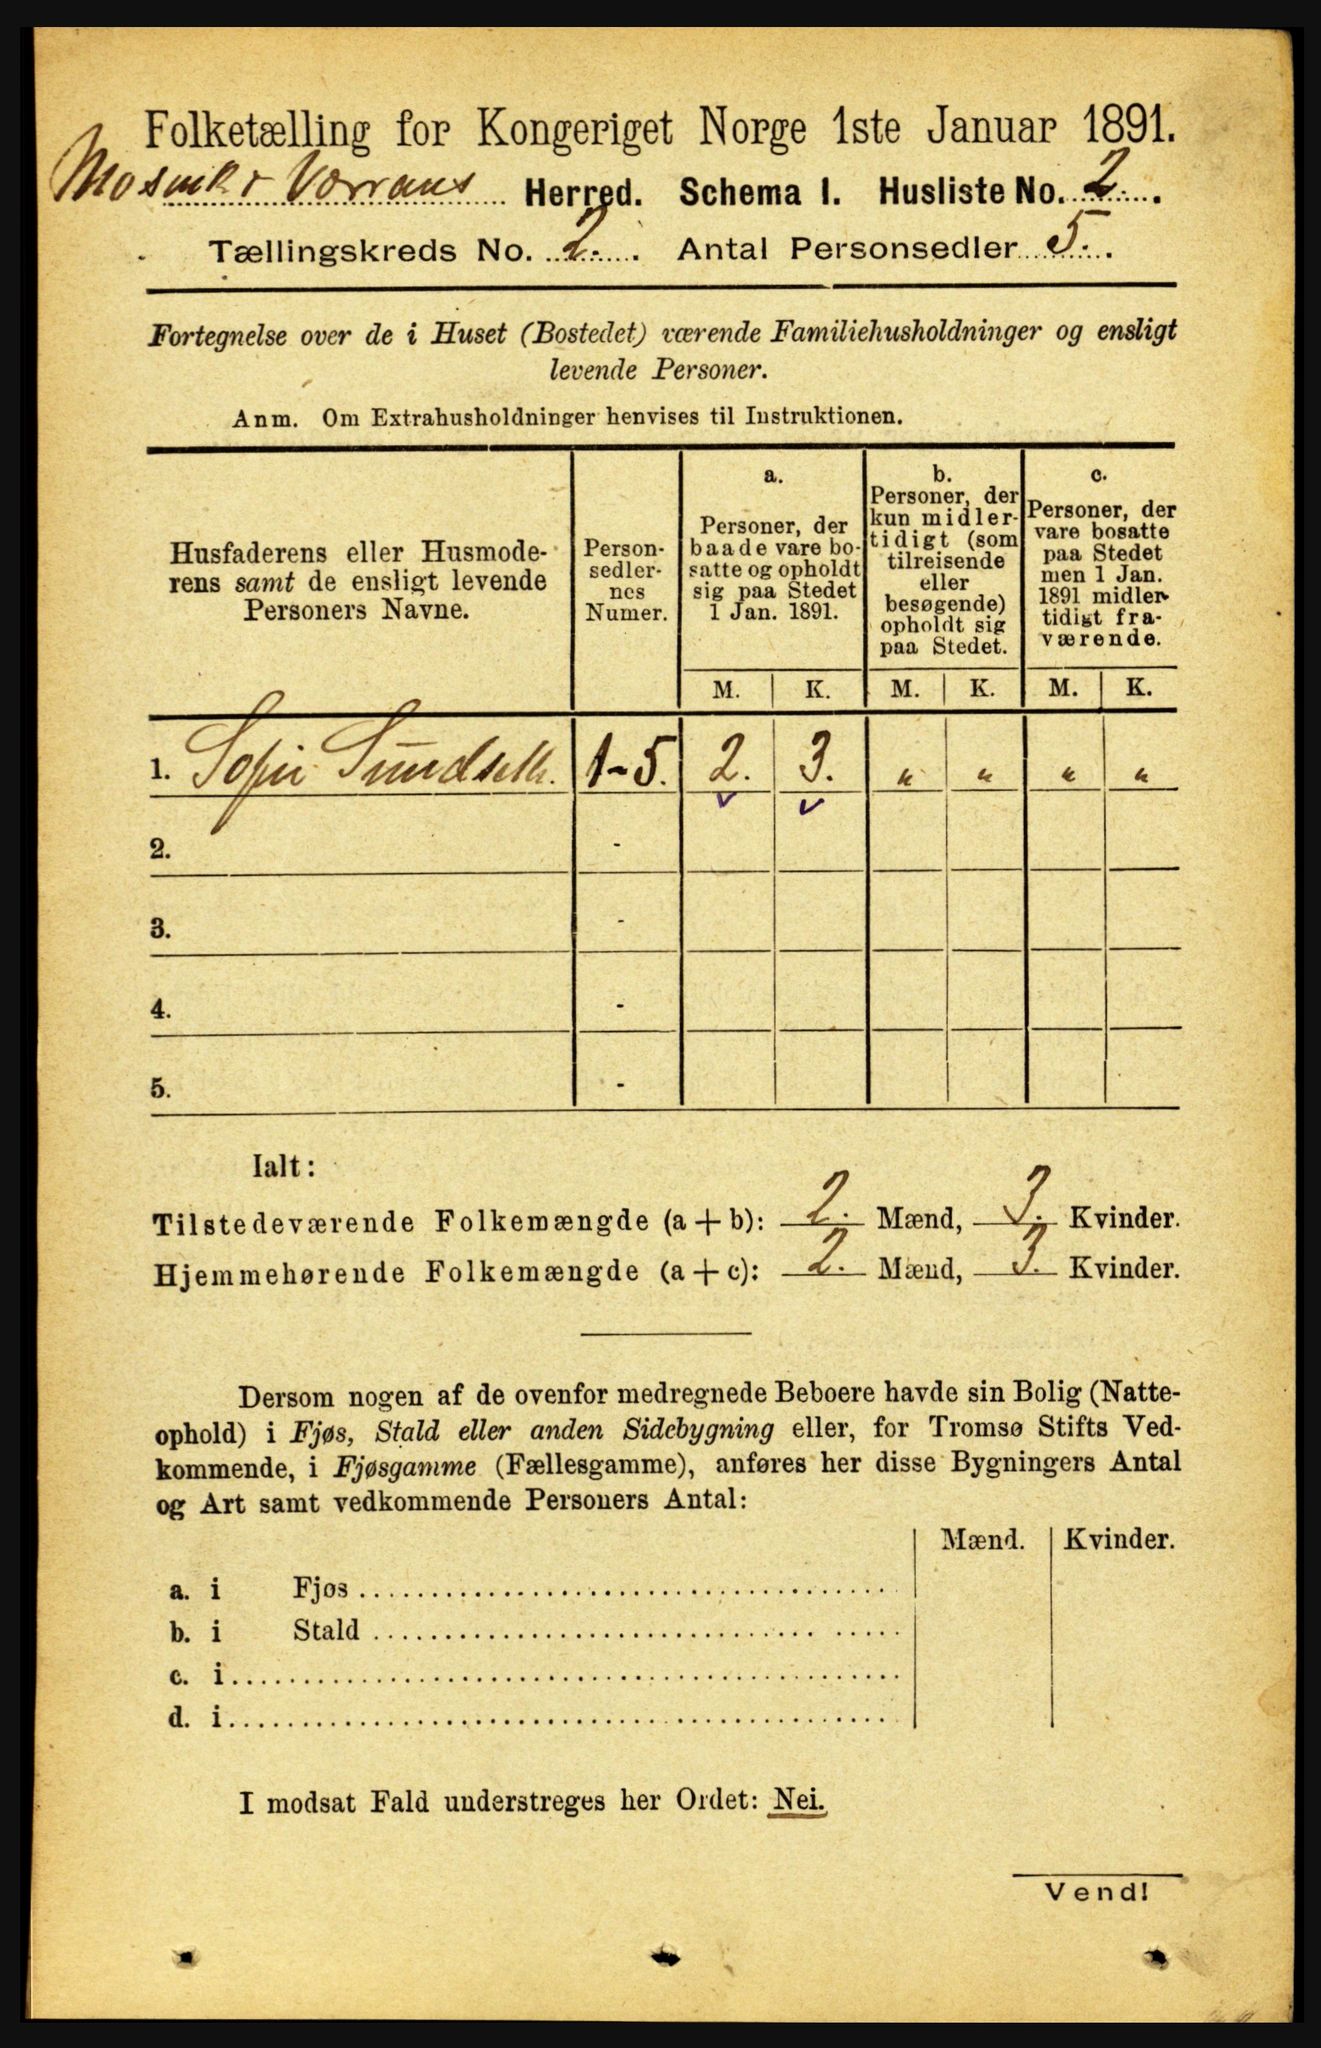 Folketælling for Kongeriget Norge 1ste Januar 1891.
Mosvik & Værrans Herred. Schema 1. Husliste No. 2.
Tællingskreds No. 2. Antal Personsedler 5.
Fortegnelse over de i Huset (Bostedet) værende Familiehusholdninger og ensligt
levende Personer.
Anm. Om Extrahusholdninger henvises til Instruktionen.
Husfaderens eller Husmode-
rens samt de ensligt levende
Personers Navne.
Person-
sedler-
nes
Numer.
a.
Personer, der
baade vare bo-
satte og opholdt
sig paa Stedet
1 Jan. 1891.
b.
Personer, der
kun midler-
tidigt (som
tilreisende
eller
besøgende)
opholdt sig
paa Stedet.
c.
Personer, der
vare bosatte
paa Stedet
men 1 Jan.
1891 midler-
tidigt fra-
værende.
M. K. M. K. M. K.
1. Sofie 1-5. 2. 3. " " " "
2. -
3. -
4. -
5. -
Ialt:
Tilstedeværende Folkemængde (a + b): 2. Mænd, 3. Kvinder.
Hjemmehørende Folkemængde (a + c): 2. Mænd, 3. Kvinder.
Dersom nogen af de ovenfor medregnede Beboere havde sin Bolig (Natte-
ophold) i Fjøs, Stald eller anden Sidebygning eller, for Tromsø Stifts Ved-
kommende, i Fjøsgamme (Fællesgamme), anføres her disse Bygningers Antal
og Art samt vedkommende Personers Antal:
Mænd. Kvinder.
a. i Fjøs
b. i Stald
c. i
d. i
I modsat Fald understreges her Ordet: Nei.
Vend!